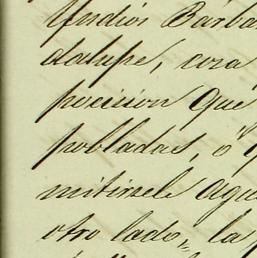 Yndios Bárba
dalupe, cora
pocicion que
pobladas, ó
mitirsele aqu
otro lado, la